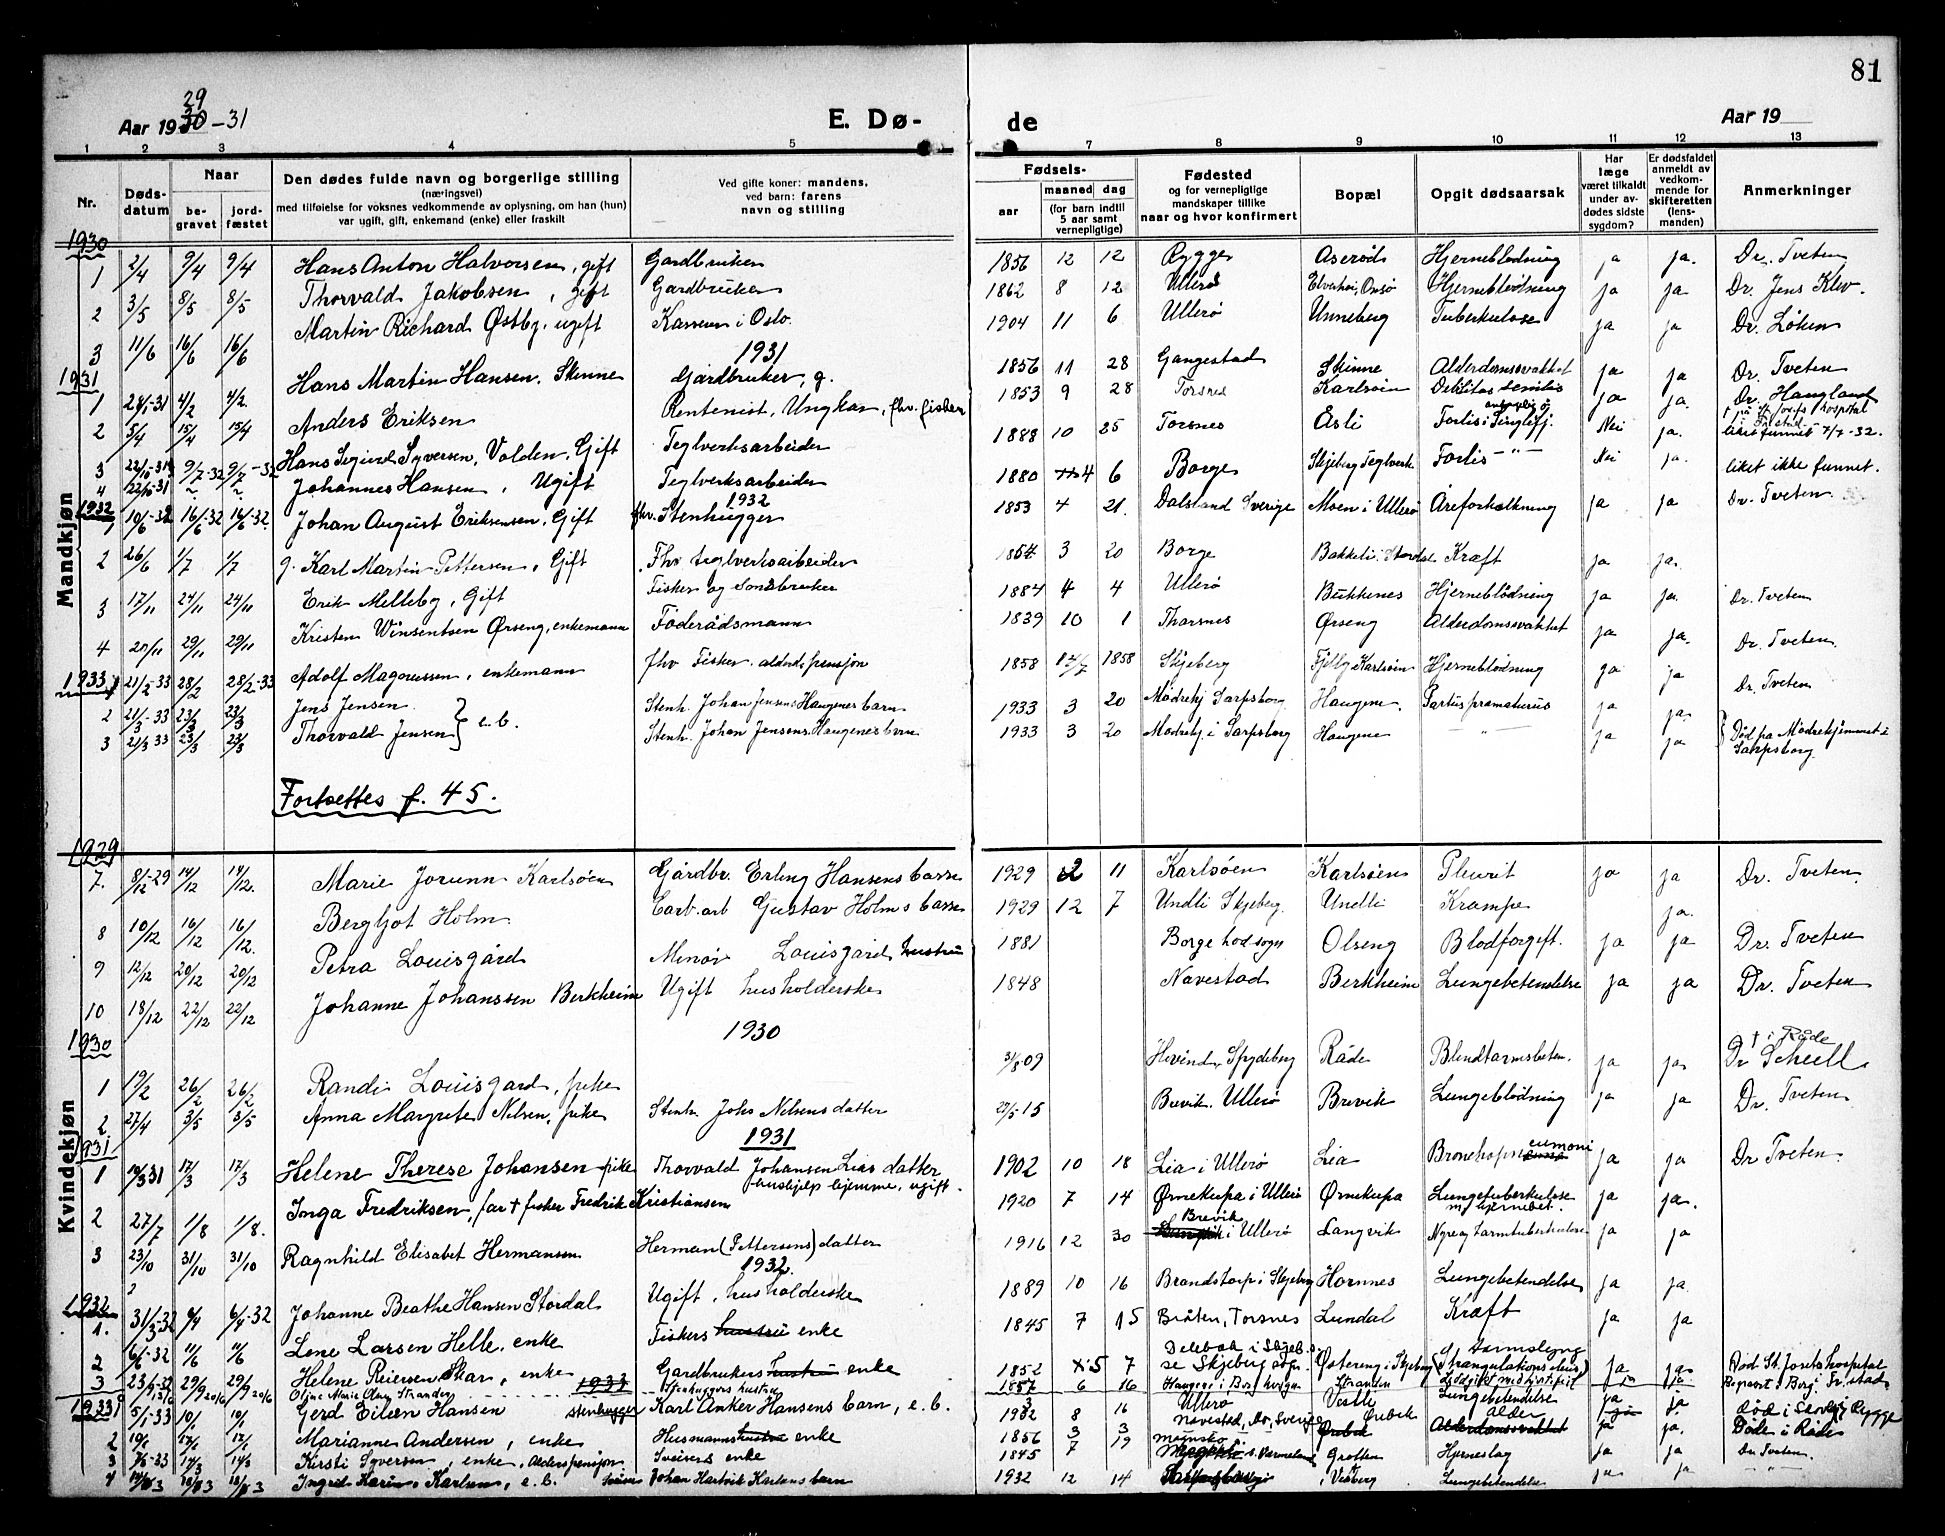 81
Aar 1930-31 29
E. Dø-
de
Aar 19
1 2 3 4 5 7 8 9 10 11 12 13
Nr.
Dødsdatum
Naar
begravet
jordfæstet
Den dødes fulde navn og borgerlige stilling
(næringsvei)
med tilføielse for voksnes vedkommende av oplysning, om han (hun)
var ugift, gift, enkemand (enke) eller fraskilt
Ved gifte koner: mandens,
ved barn: farens
navn og stilling
Fødsels-
aar
maaned dag
(for barn indtil
5 aar samt
vernepligtige)
Fødested
og for vernepligtige
mandskaper tillike
naar og hvor konfirmert
Bopæl
Opgit dødsaarsak
Har
læge
været tilkaldt
under av-
dødes sidste
sygdom?
Er dødsfaldet
anmeldt av
vedkom-
mende for
skifteretten
(lens-
manden)
Anmerkninger
Mandkjøn
1930
1 2/4 9/4 9/4 Hans Anton Halvorsen, gift Gardbruker 1856 12 12 Rygge Aserød Hjerneblödning ja ja. Dr. Tveten
2 3/5 8/5 8/5 Thorvald Jakobsen, gift Gardbruker 1862 8 12 Ullerø Elverhøi, Onsø Hjerneblödning ja ja Dr. Jens Klev.
3 11/6 16/6 16/6 Martin Richard Østby, ugift Kasserer i Oslo. 1904 11 6 Ullerø Unneberg Tuberkulose ja ja Dr. Løken
1931
1931
1 28/1-31 4/2 4/2. Hans Martin Hansen, Skinne Gårdbruker, g. 1856 11 28 Gangestad Skinne Alderdomssvakhet ja ja Dr. Tveten
2 5/4 15/4 15/4 Anders Eriksen Rentenist, Ungkar, fhv. fisker 1853 9 28 Torsnes Karlsøen Debilitas senilis ja ja. Dr. Haugland
† på St. Josefs hospital Fr.stad
3 22/10-31 9/7-32 9/7-32 Hans Sigurd Syversen, Volden, Gift Teglverksarbeider 1888 10 25 Torsnes Åsli Forlis i Singlefj. Nei ja. Liket funnet 7/7-32.
4 22/10-31 ~ ~ Johannes Hansen, Ugift Teglverksarbeider 1880 4 6 Borge Skjeberg Teglverk Forlis -"- Nei ja. liket ikke funnet.
1932
1932
1 10/6-32 16/6-32 16/6-32. Johan August Eriksensen, Gift fhv. Stenhugger 1853 4 21. Dalsland Sverige Moen i Ullerø Åreforkalkning ja ja Dr. Tveten
2 26/6 1/7 1/7 g. Karl Martin Pettersen, Gift Fhv teglverksarbeider 1854 3 20 Borge Bakkeli i Stordal Kræft ja ja.
3 17/11 24/11 24/11 Erik Melleby, Gift Fisker og Småbruker 1884 4 4 Ullerø Bukkenes Hjerneblödning ja ja. Dr. Tveten
4 20/11 29/11 29/11 Kristen Winsentsen Ørseng, enkemann Föderådsmann 1839 10 1 Thorsnes Ørseng Alderdomssvakhet ja ja. Dr. Tveten.
1933
1 21/2-33 28/2 28/2-33 Adolf Magnussen, enkemann fhv Fisker, aldersd. pensjon 1858 14/7 1858 Skjeberg Fjelly Karlsøen Hjerneblödning ja ja Dr. Tveten
2 21/3-33 23/3 23/3 Jens Jensen } e. b. Stenh. Johan Jensens Haugenes barn 1933 3 20 Mødrehj Sarpsborg Haugene. Partus præmaturus ja ja
3 21/3 33 23/3 23/3 Thorvald Jensen } Stenh. Johan Jensens Haugenes barn 1933 3 20 Mødrehj. i Sarpsborg Haugene -"- ja ja { Död på Mødrehjemmet i Sarpsborg.
Fortsettes f. 45.
Kvindekjøn
1929
7. 8/12-29 14/12 14/12. Marie Jorunn Karlsöen Gjårdbr. Erling Hansens barn 1929 2 11 Karlsöen Karlsöen Pleurit ja ja Dr. Tveten.
8 10/12 16/12 16/12. Bergljot Holm Carb. arb Gustav Holms barn 1929 12 7 Undli Skjeberg. Undli Krampe ja.
9 12/12 20/12 20/12 Petra Louisgård Minør Louisgård hustru 1881 Borge hovedsogn Olseng Blodforgift. ja ja Dr. Tveten
10 18/12 22/12 22/12 Johanne Johanssen Berkheim Ugift husholderske 1848 Navestad Berkheim Lungebetendelse ja ja Dr. Tveten
1930
1930
1 19/2 26/2 26/2 Randi Louisgard, pike 31/8 09 Hevind, Spydeberg Råde Blindtarmsbeten. ja ja Dr Scheell † i Råde
2 27/4 3/5 3/5 Anna Margrete Nilsen, pike Stenh. Johs Nilsens datter 22/5-15 Brevik. Ullerø Brevik Lungeblödning ja ja Dr. Tveten
1931
1931
1 10/3 31 17/3 17/3 Helene Therese Johansen pike Thorvald Johansen Lias datter hushjelp hjemme, ugift. 1902 10 18 Lia i Ullerø Lia Bronchopneumoni ja ja Dr Tveten.
2 27/7 1/8 1/8. Inga Fredriksen, far † fisker Fredrik Kristiansen 1920 7 14 Ørnekupa i Ullerø Ørnekupa Lungetuberkulose m/ hjernebet. ja ja.
3 23/10 31/10 31/10 Ragnhild Elisabet Hermansen Herman (Pettersens) datter 1916 12 30 Brevik i Ullerø Langvik Nyre og tarmtuberkulose ja ja
1932.
1932
1. 31/3-32 6/4 6/4-32 Johanne Beathe Hansen Stordal Ugift, husholderske 1889 10 16 Brandstorp i Skjeberg Hornnes Lungebetendelse ja ja
2 6/6-32 11/6 11/6 Lene Larsen Helle, enke Fiskers hustru enke 1845 7 15 Bråten, Torsnes Lundal Kræft ja ja
3 23/9-32 29/9 29/9 Helene Reiersen Skar, enke Gardbrukers hustru enke 1852 5 7 Delebak i Skjeb. se Skjeberg sogn Østereng i Skjeberg tarmslyng (Strangulations ileus) ja ja Död St. Josefs hospital
Oline Marie Olsen Stranden Stenhuggers hustru 1857 6 16 Haugene i Borg hvsgn Stranden ja ja Begravet i Borg. Fr.stad
1933
1933
1 5/1-33 10/1 10/1 Gerd Eileen Hansen stenhugger Karl Anker Hansens barn, e. b. 1932 8 16 Ullerø Vestli Lungebetendelse ja ja död i Rygge
2 10/1 17/1 17/1 Marianne Andersen, enke Husmanns hustru enke 1856 3 3 Navestad, Sverige Ørebek Alder Alderdomssvakhet ja ja Döde i Råde
3 7/3-33 14/3 14/3 Kirsti Syversen, enke, Alderspensjon Sveisers enke 1845 7 19 i Vermeland Grotten Hjerneslag ja ja Dr. Tveten
4 18/3 18/3 Ingrid Karin Karlsen, e. b. Johan Hartvik Karlsens barn 1932 12 14 Sarpsborg Visberg Lungebetendelse ja ja -"-